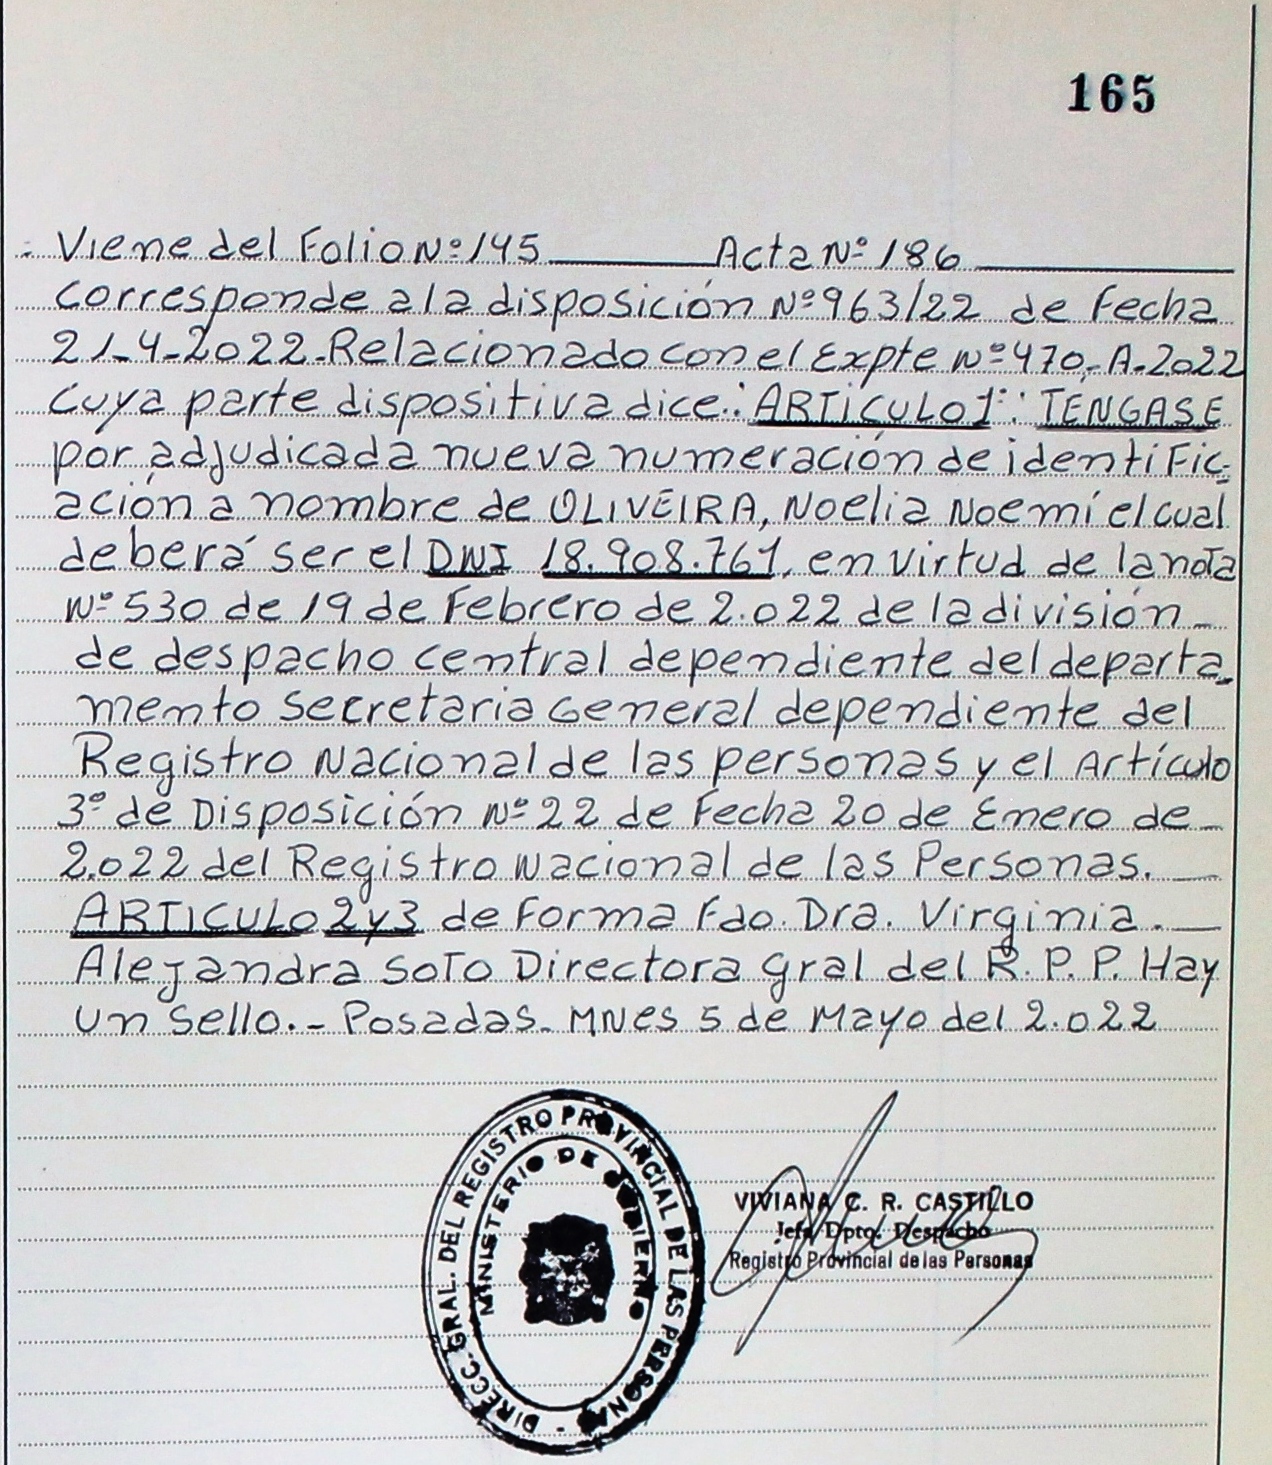 165
Viene del Folio Nº 145 Acta Nº 186
Corresponde a la disposición Nº 963/22 de Fecha
21-4-2022-Relacionado con el Expte Nº 470,-A-2022
Cuya parte dispositiva dice: ARTICULO 1º: TENGASE
por adjudicada nueva numeración de identific-
ación a nombre de OLIVEIRA, Noelia Noemí el cual
deberá ser el DNI 18.908.761, en virtud de la nota
Nº 530 de 19 de Febrero de 2.022 de la división-
de despacho central dependiente del departa-
mento Secretaria General dependiente del
Registro Nacional de las personas y el Artículo
3º de Disposición Nº 22 de Fecha 20 de Enero de-
2.022 del Registro Nacional de las Personas.-
ARTICULO 2 y 3 de Forma Fdo. Dra. Virginia.-
Alejandra Soto Directora Gral del R.P.P. Hay
un sello.- Posadas-MNes 5 de Mayo del 2.022
DIRECC. GRAL. DEL REGISTRO PROVINCIAL DE LAS PERSONAS -
MINISTERIO DE GOBIERNO
VIVIANA C. R. CASTILLO
Jefa Dpto. Despacho
Registro Provincial de las Personas